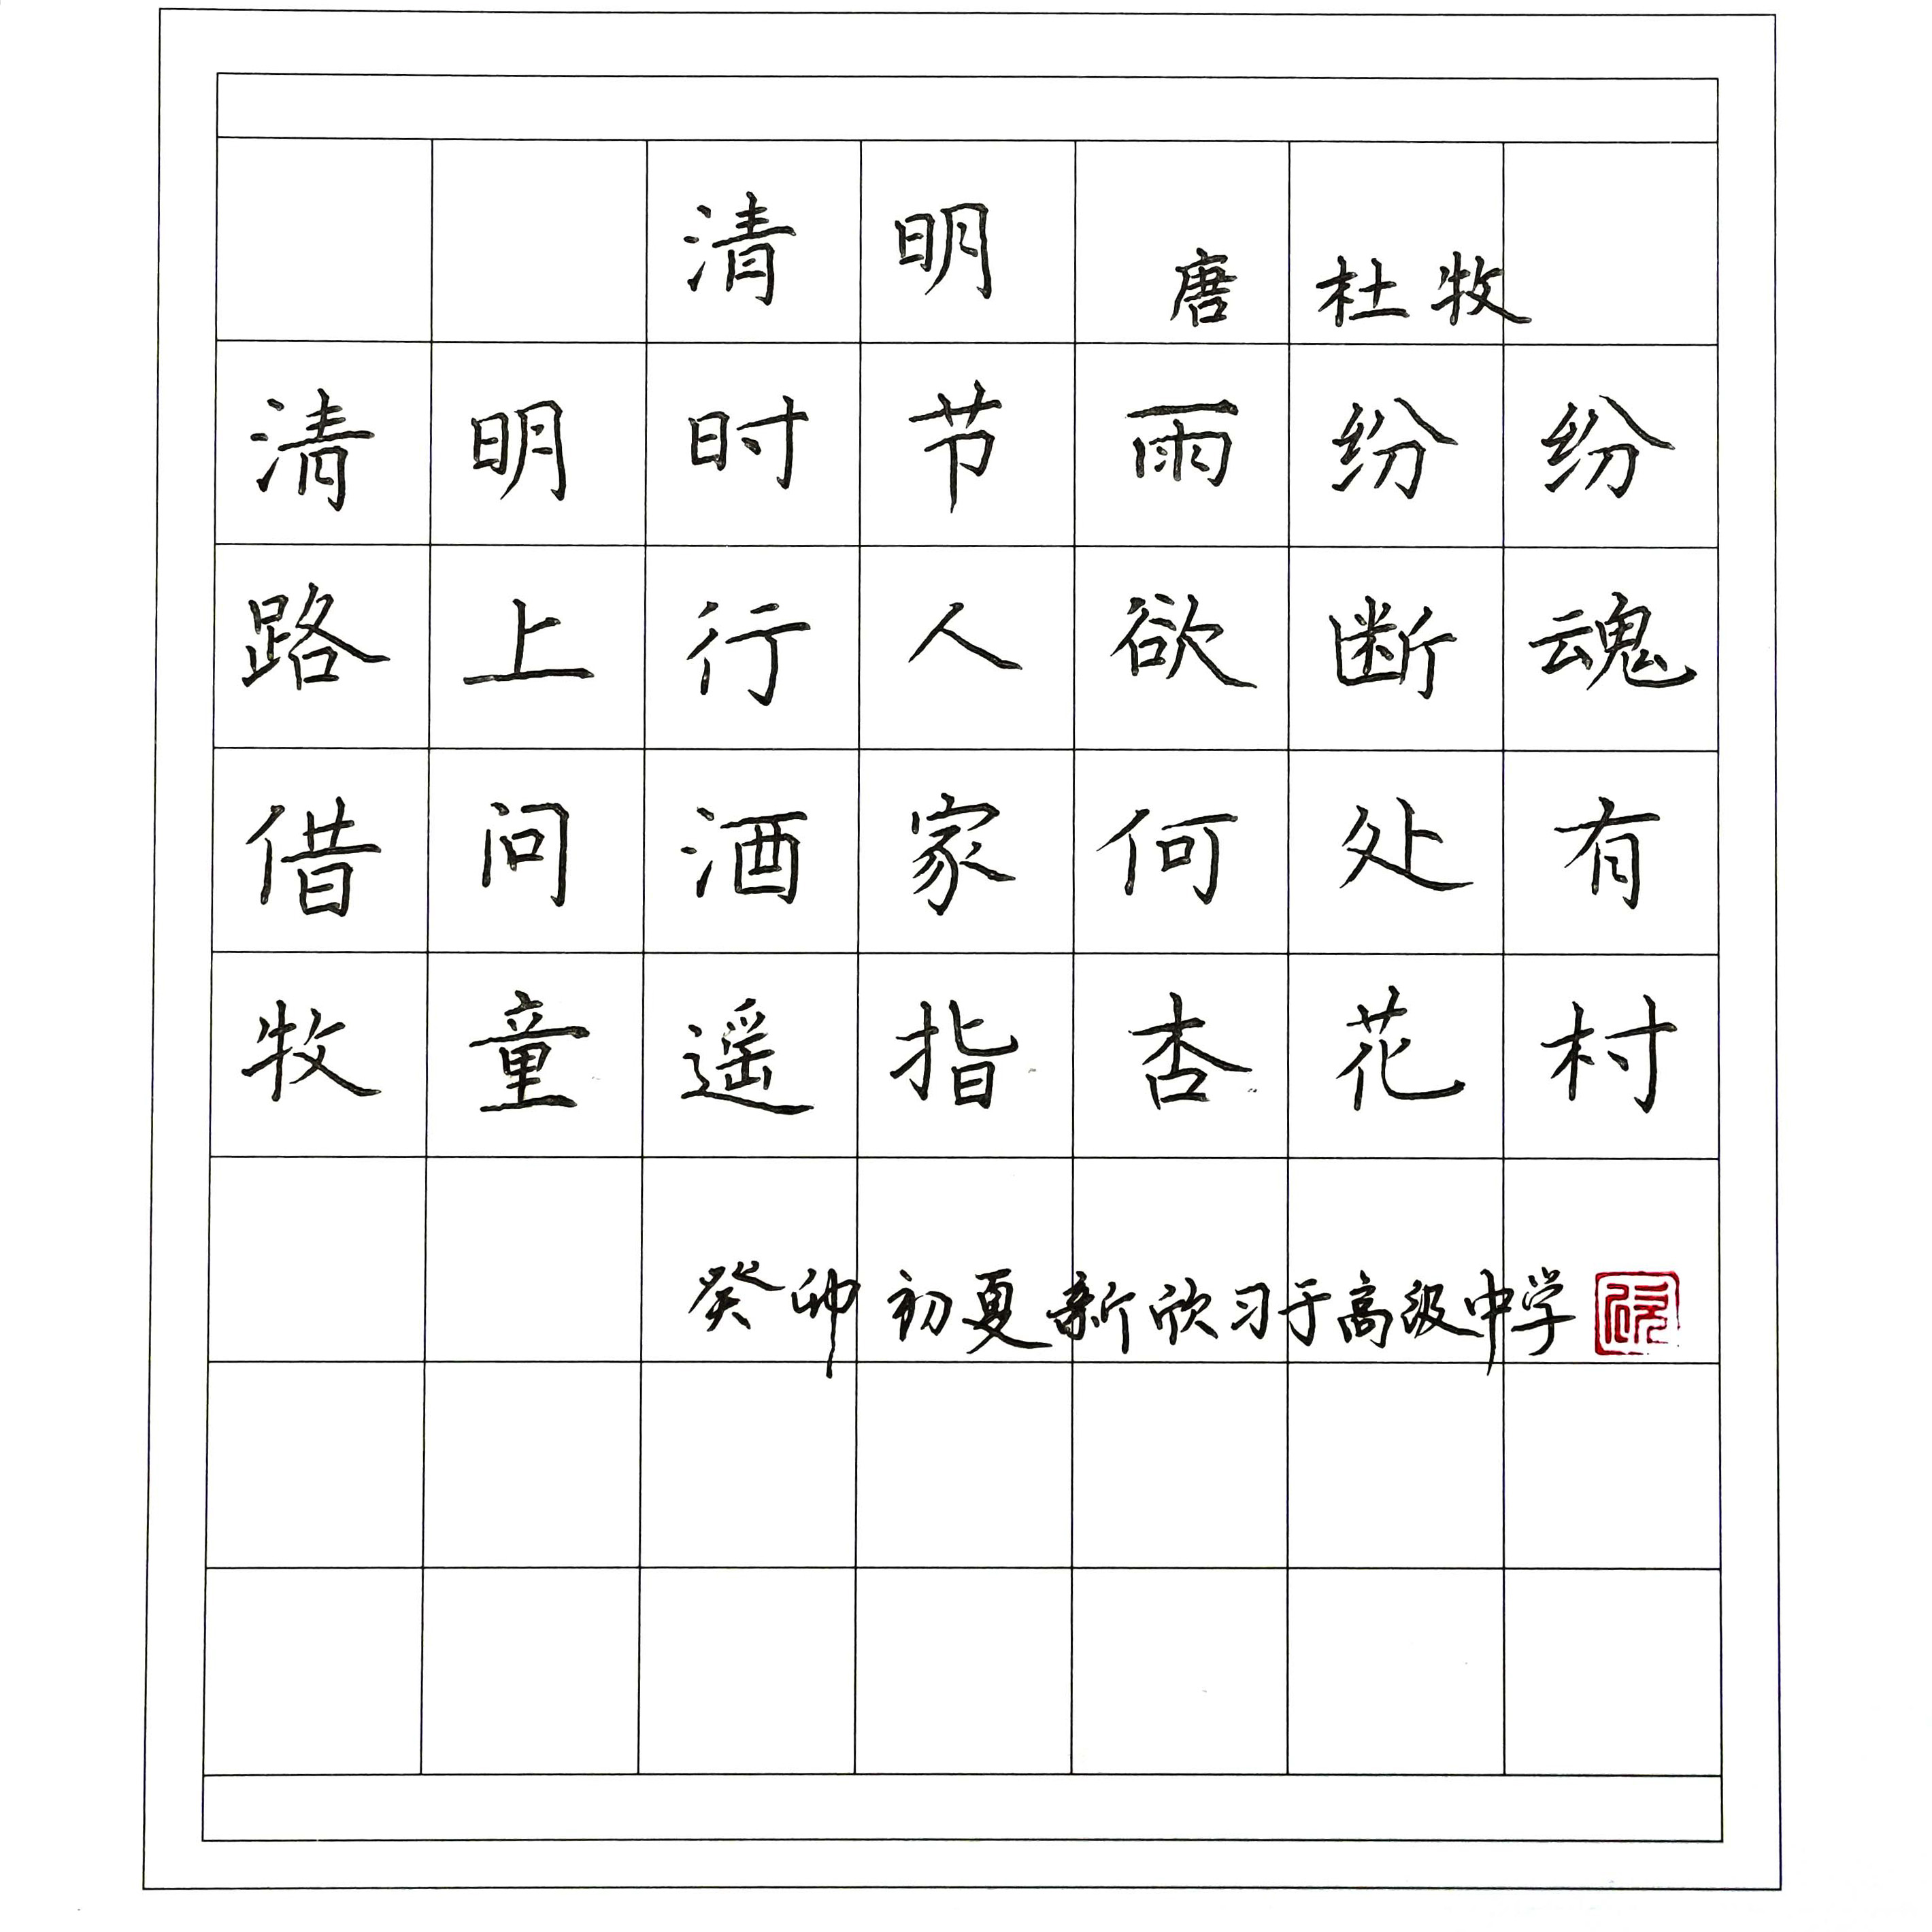 清明 唐 杜牧
清明时节雨纷纷
路上行人欲断魂
借问酒家何处有
牧童遥指杏花村
癸卯初夏新欣习于高级中学